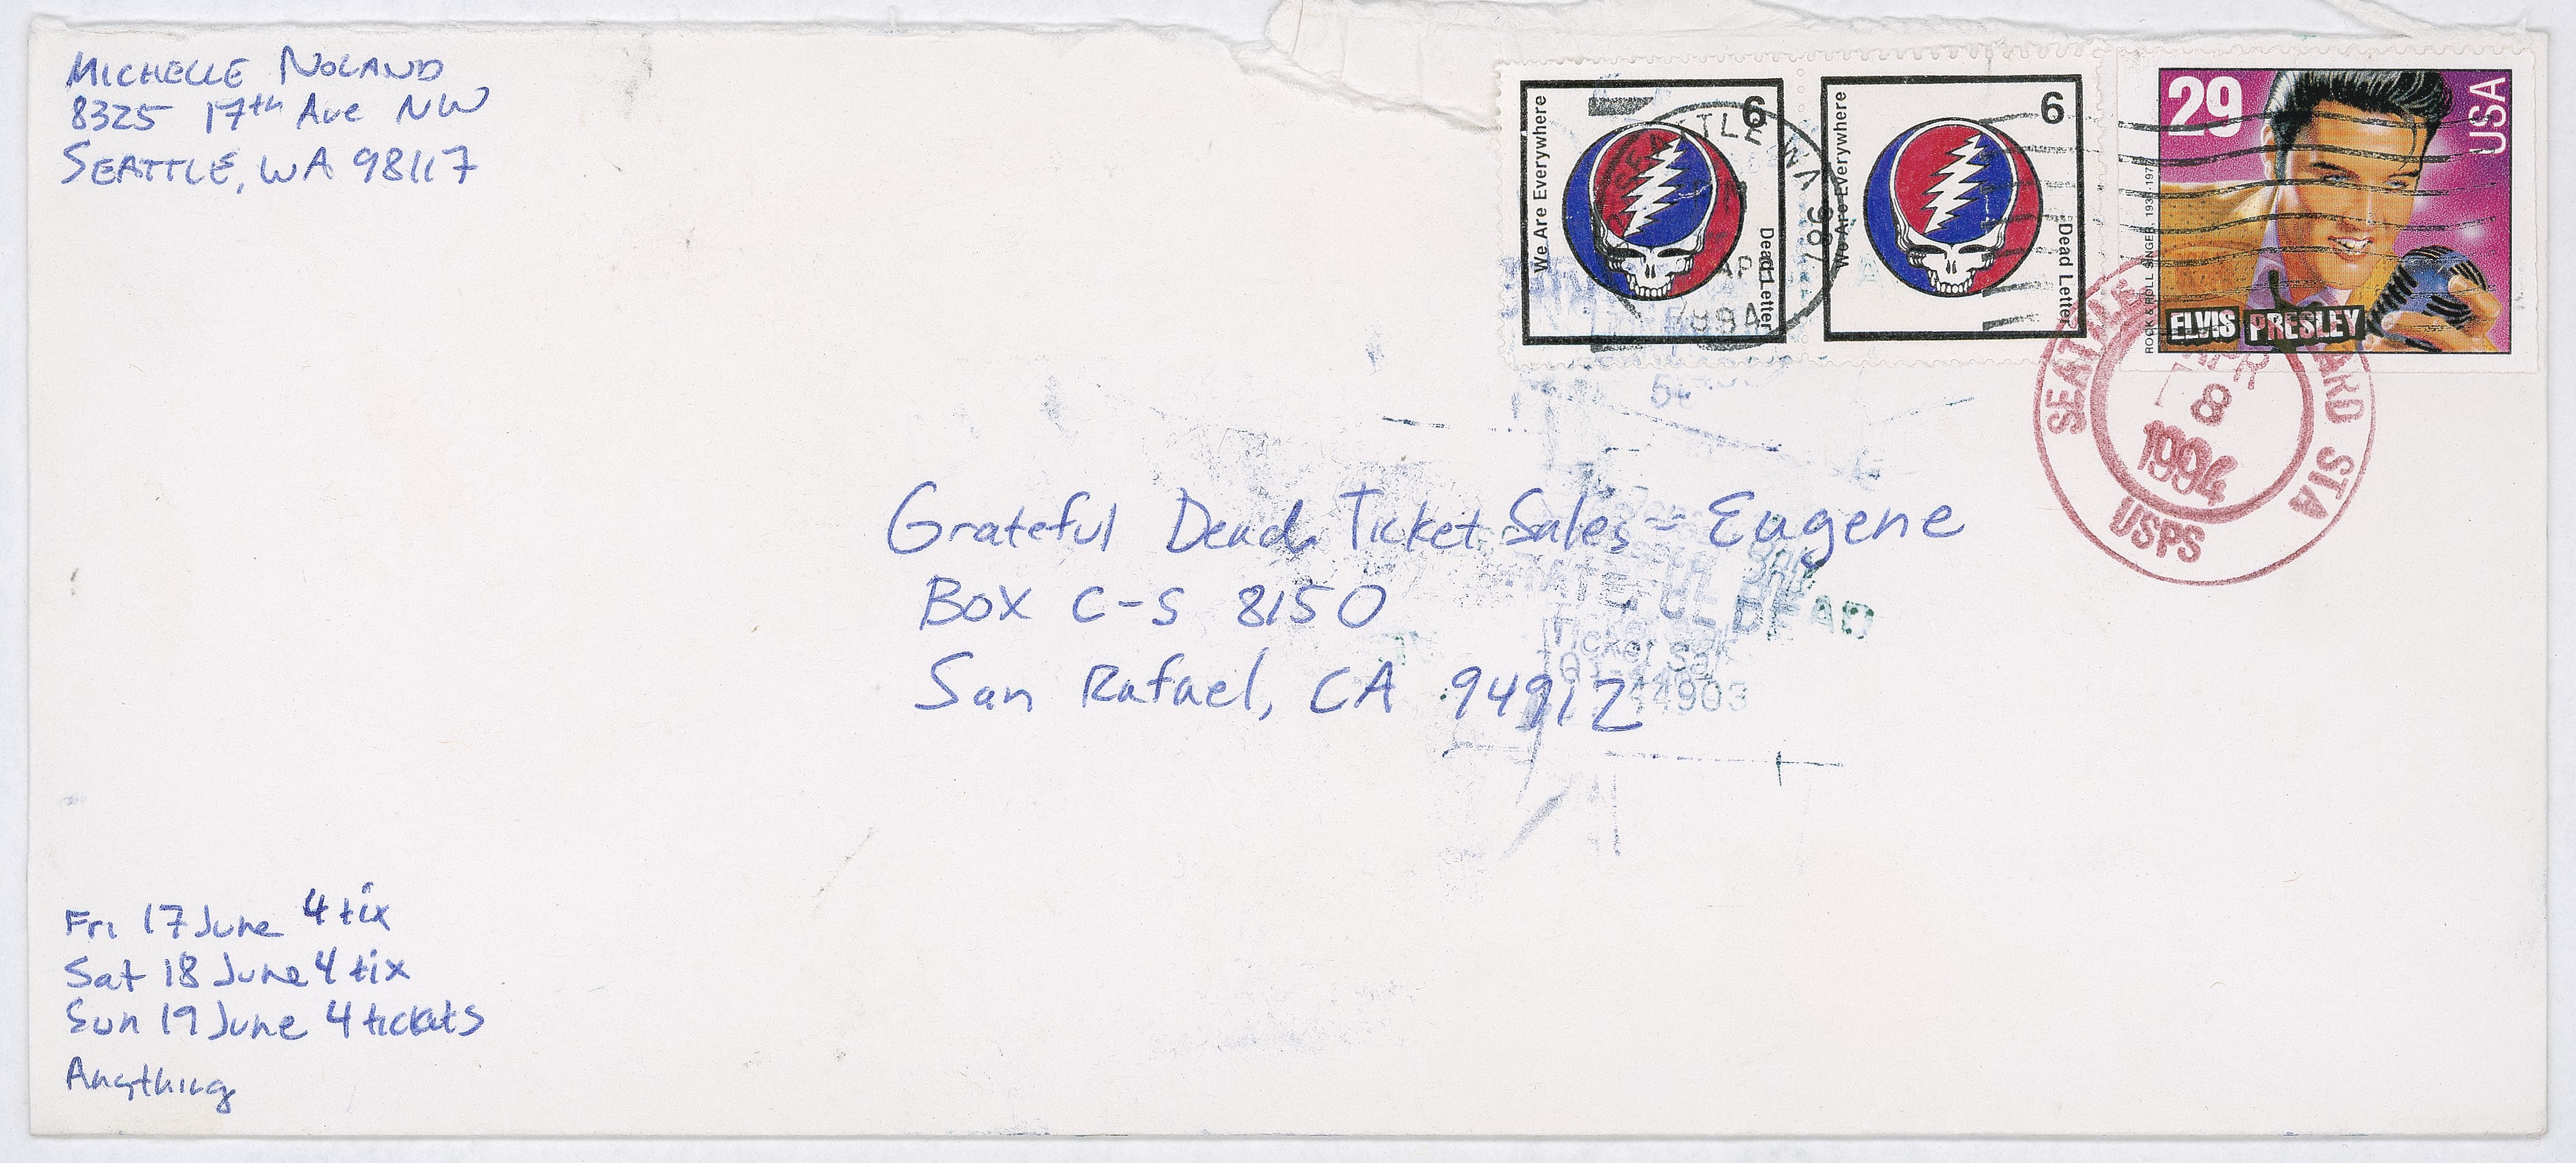 MICHELLE NOLAND
8325 17th Ave NW
SEATTLE, WA 98117
We Are Everywhere
6
Dead Letter
We Are Everywhere
6
Dead Letter
29
USA
ROCK & ROLL SINGER, 1935-197
ELVIS PRESLEY
SEATTLE WA
981
AP
1994
SEATTLE
ARD STA
APR
8
1994
USPS
Grateful Dead Ticket Sales - Eugene
Box C-S 8150
San Rafael, CA 94912
ATEFUL DEAD
Ticket Sal
94903
Fri 17 June 4 tix
Sat 18 June 4 tix
Sun 19 June 4 tickets
Anything